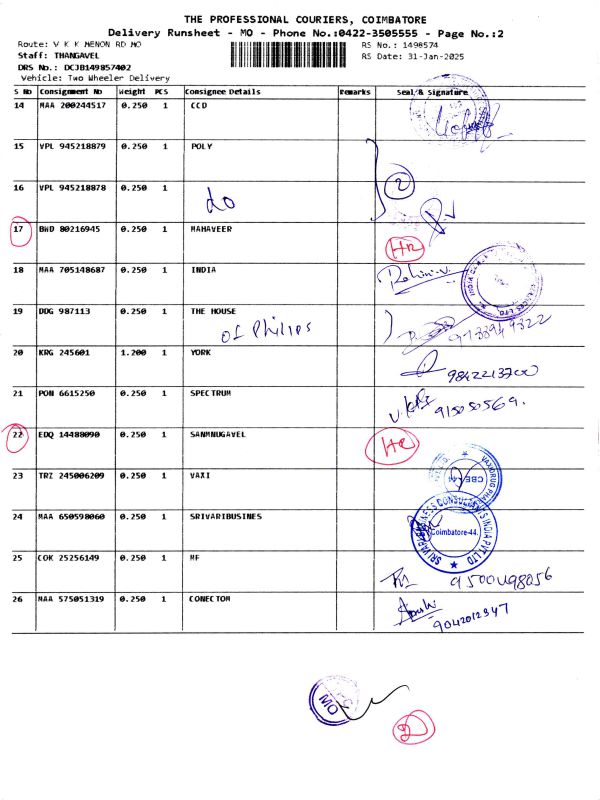 THE PROFESSIONAL COURIERS, COIMBATORE
Delivery Runsheet - MO - Phone No.:0422-3505555 - Page No.:2
Route: V K K MENON RD MO
RS No.: 1498574
Staff: THANGAVEL
RS Date: 31-Jan-2025
DRS No.: DCJB149857402
Vehicle: Two Wheeler Delivery
S No Consignment No Weight PCS Consignee Details Remarks Seal & Signature
14 MAA 200244517 0.250 1 CCD
15 VPL 945218879 0.250 1 POLY
16 VPL 945218878 0.250 1 do 2
17 BWD 80216945 0.250 1 MAHAVEER
18 MAA 705148687 0.250 1 INDIA
19 DDG 987113 0.250 1 THE HOUSE
of Philips
20 KRG 245601 1.200 1 YORK 9842213700
21 PON 6615250 0.250 1 SPECTRUM 915050569.
22 EDQ 14488090 0.250 1 SANMNUGAVEL
23 TRZ 245006209 0.250 1 VAXI
24 MAA 650598060 0.250 1 SRIVARIBUSINES Coimbatore-44.
25 COK 25256149 0.250 1 MF 9500498056
26 MAA 575051319 0.250 1 CONECTOM 9042012347
MO